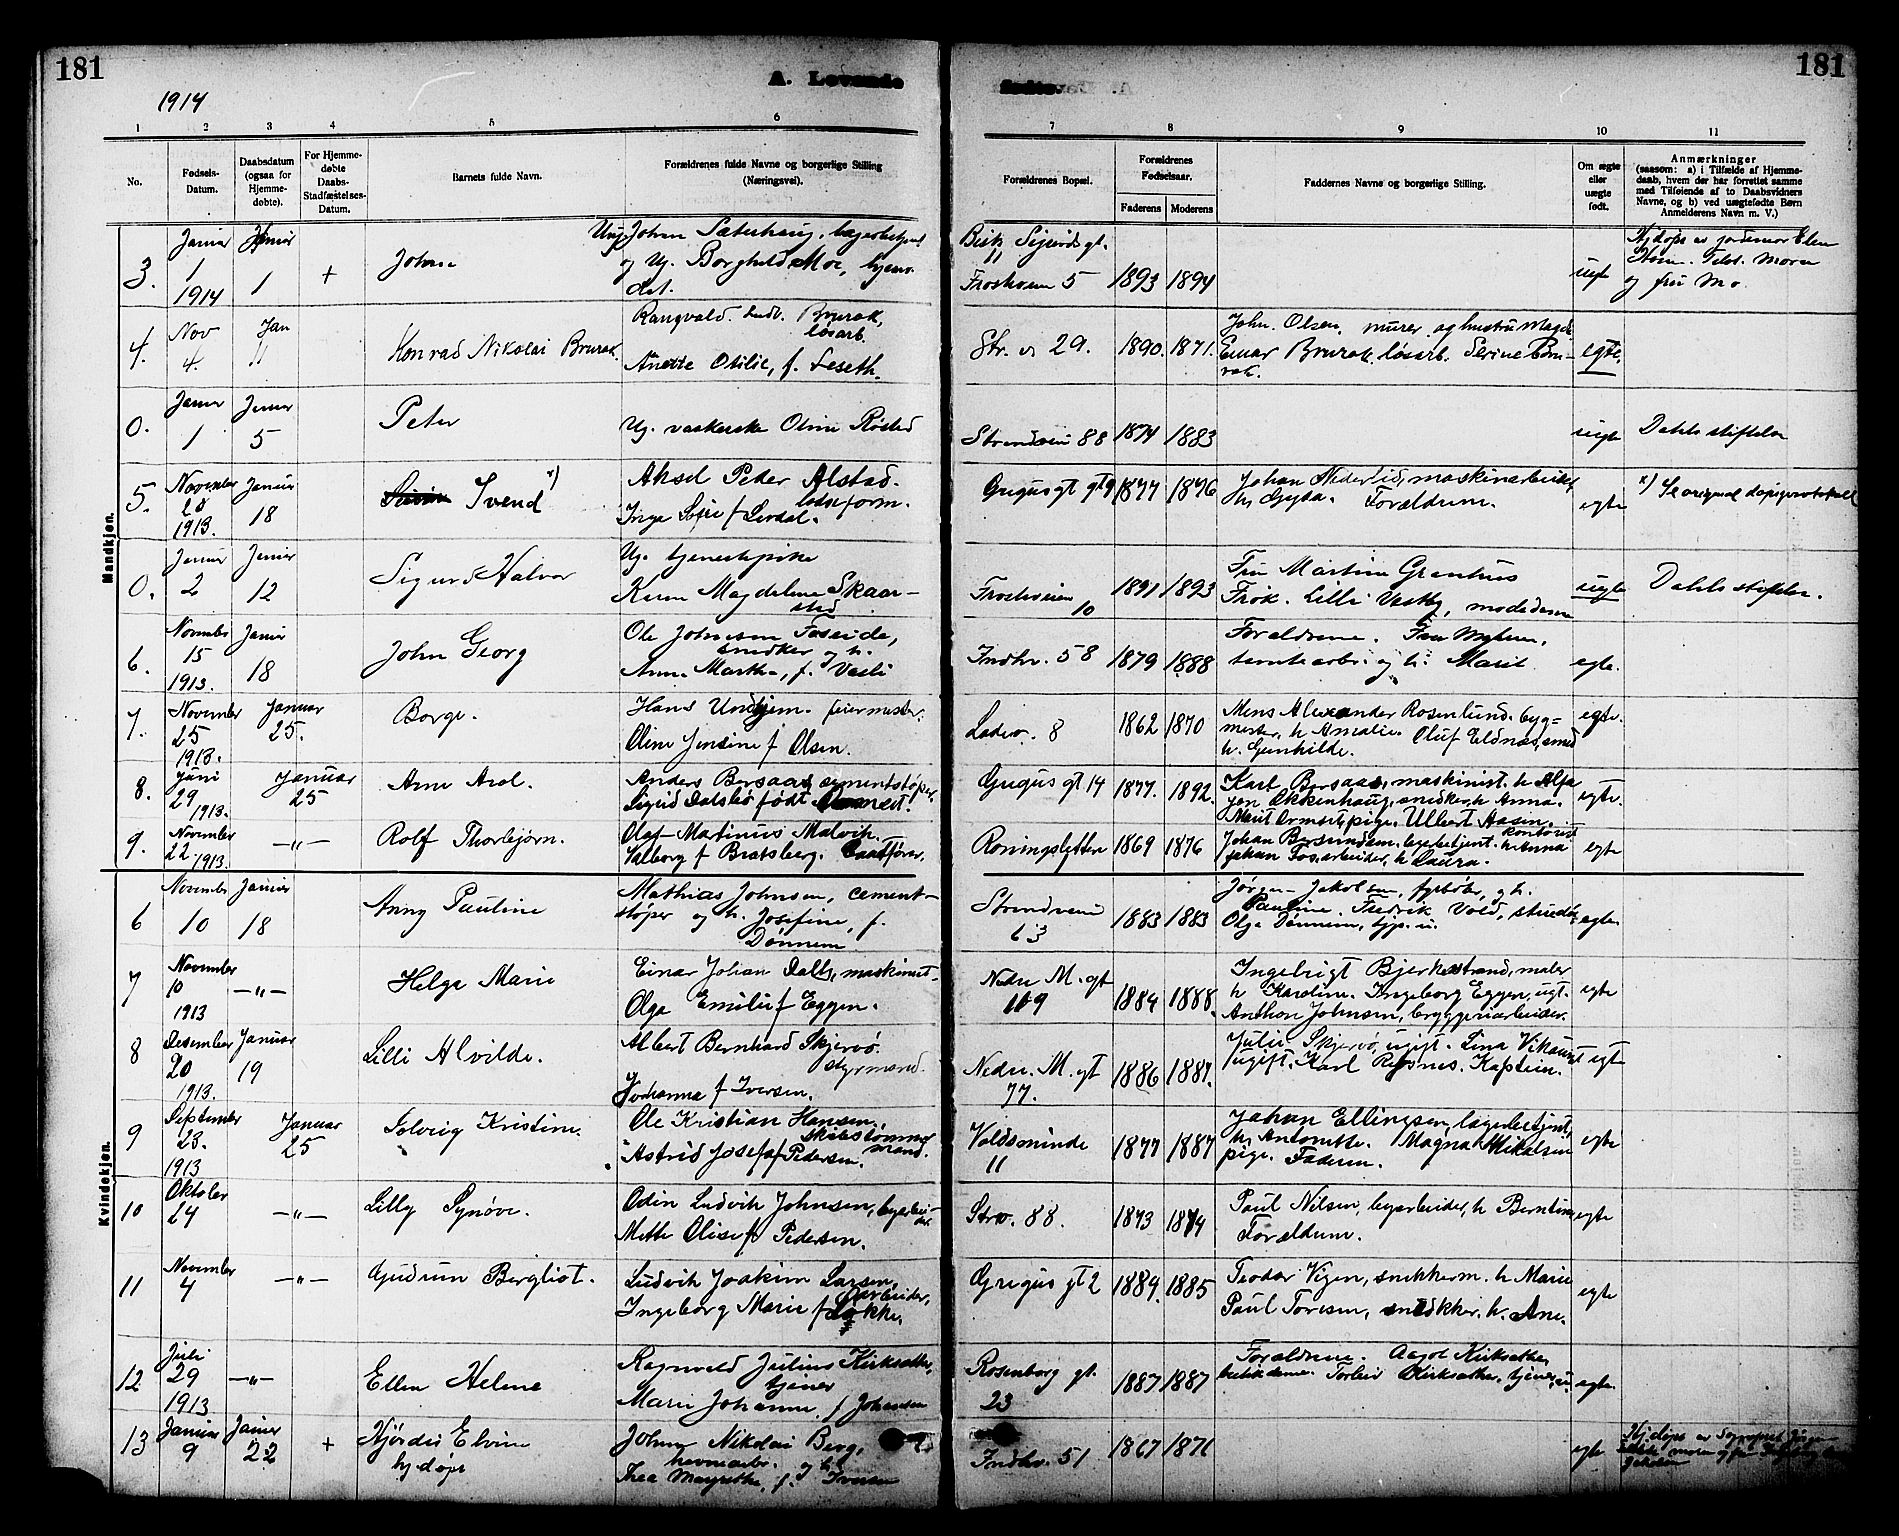 181
1914
A. Levende
fødte.
181
1 2 3 4 5 6 7 8 9 10 11
No.
Fødsels-
Datum.
Daabsdatum
(ogsaa for
Hjemme-
døbte).
For Hjemme-
døbte
Daabs-
Stadfæstelses-
Datum.
Barnets fulde Navn.
Forældrenes fulde Navne og borgerlige Stilling
(Næringsvei).
Forældrenes Bopæl.
Forældrenes
Fødselsaar.
Faderens Moderens
Faddernes Navne og borgerlige Stilling.
Om ægte
eller
uægte
født.
Anmærkninger
(saasom: a) i Tilfælde af Hjemme-
daab, hvem der har forrettet samme
med Tilføiende af to Daabsvidners
Navne, og b) ved uægtefødte Børn
Anmelderens Navn m. V.)
Mandkjøn.
3. Januar 1 1914
Januar 1
+
Johan
Ungk Johan Sæterhaug, lagerbetjent
og Ug. Borghild Moe, hjem-
Frostveien 5
1893 1894
uegte
og fru Mo
4. Nov 4.
Jan 11
Konrad Nikolai Brurok.
Rangvald Ludv. Brurok,
løsarb.
Anette Otilie, f. Leseth.
Str. v 29.
1890. 1871.
John. Olsen, murer og hustru Magda
Einar Brurok løsarb. Serine Brur-
rok.
egte.
0. Januar 1
Januar 5
Peter
Ug. vaskerske Oline Røstad
Strandvein 88
1874 1883
uegte
Dahls stiftelse
5. November 20 1913.
Januar 18
Svend x)
Aksel Peder Alstad.
lodseform.
Inga f Lerdal.
Gregus gt 9
1877 1876
Johan Nederlid, maskinarbeider
h. Gyda. Forældrene.
egte
x) Se original daapsprotokoll
0. Januar 2
Januar 12
Sigurd Halvor
Ug. tjenestepike
Karen Magdelene Skaar-
stad
Frostveien 10
1891 1893
Fru Martine Granhus
Frøk. Lilli Vestby, modedame
uegte
Dahls stiftelse.
6. November 15 1913.
Januar 18
John Georg
Ole Johnsen Foseide,
snedker og h.
Anna Martha, f. Vasli
Indhr. 58
1879 1888
Forældrene. Fru Myhren,
og h. Marit
egte.
7. November 25 1913.
Januar 25.
Borge.
Hans Undhjem. feiermester.
Oline Jensine f Olsen.
Ladev. 8
1862 1870
Mons Alexander Rosenlund. byg=
mester, h Amalie. Oluf Eldnæs, smed
h. Gunhilde.
egte.
8. Juni 29 1913.
Januar 25
Arne Axel.
Anders Borsaas, sementstøper.
Sigrid Dalsbø født
Gregus gt 14
1877. 1892.
Karl Borsaas, maskinist. h Alfa
Jon Okkenhaug, snedker, h Anna.
Marit Ormset, pige. Albert Aasen, kontorist
egte.
9. November 22 1913.
—„—
Rolf Thorbjørn.
Olaf Martinus Malvik.
Valborg f Bratsberg.
Roningsletten
1869 1876
h Anna
Johan Fos, arbeider, h Laura.
egte
Kvindekjøn.
6 November 10
Januar 18
Anny Pauline
Mathias Johnsen, cement-
støper og h. Josefine, f.
Dønnem
Strandvein 63
1883 1883
Jørgen Jakobsen, fyrbøter, og h.
Pauline. Fredrik Vold,
Olga Dønnem, tjp. u.
egte
7 November 10 1913
—„—
Helga Marie
Einar Johan Dalls, maskinist-
Olga Emilie f Eggen.
Nedre M. gt 109
1884 1888.
Ingebrigt Bjerkestrand, maler
h Karoline. Ingeborg Eggen, ugt.
Anthon Johnsen, bryggeriarbeider.
egte
8 Desember 20 1913.
Januar 19
Lilli Alvilde.
Albert Bernhard Skjervø.
styrmand.
Johanna f Iversen.
Nedre. M. gt 77.
1886 1887.
Julie Skjervø, ugift. Lina
ugift. Karl Refsnes. Kaptein.
egte
9 September 23. 1913
Januar 25
Solveig Kristine.
Ole Kristian Hansen,
skibstømmer
mand.
Astrid Josefa f Pedersen.
Voldsminde 11
1877 1887
Johan Ellingsen, lagerbetjent,
h. Antonette. Magna Mikalsen
pige. Faderen.
egte
10 Oktober 24
—„—
Lilly Synøve.
Odin Ludvik Johnsen, byarbei-
der
Mette Olise f Pedersen.
Strv. 88.
1873 1874
Paul Nilsen, byarbeider, h Berntine
Forældrene.
egte
11 November 4
—„—
Gudrun Bergliot.
Ludvik Joakim Larsen,
arbeider,
Ingeborg Marie f Løkke.
Gregus gt 2
1884. 1885
Teodor Vigen, snikkerm. h Marie
Paul Toresen, snedkker. h. Ane.
egte
12 Juli 29 1913
—„—
Ellen Helene
Ragnvald Julius Kirksæther,
tjener
Marie Johanne f Johansen
Rosenborg gt. 23
1887 1887
Forældrene. Aagot Kirksæther,
butikdame. Torleiv Kirksæther, tjener, u.
egte
13 Januar 9
Januar 22
+
Hjørdis Elvine
hj. døpt
Johan Nikolai Berg,
havnearb. og h.
Thea Margrethe, f. Iversen
Indhr. 51
1867 1871
egte